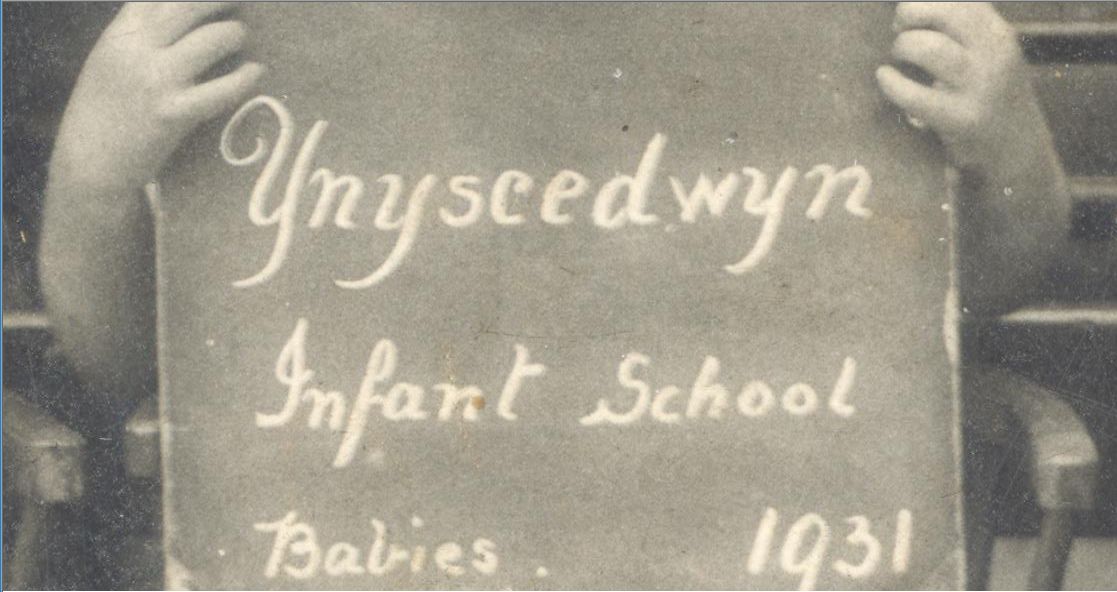 Ynyscedwyn
Infant School
Babies. 1931